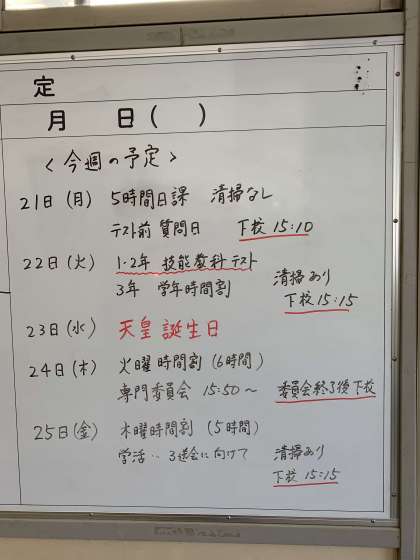 定
月 日( )
<今週の予定>
21日(月) 5時間日課 清掃なし
テスト前 質問日 下校 15:10
22日(火) 1・2年 技能教科テスト
3年 学年時間割 清掃あり
下校 15:15
23日(水) 天皇誕生日
24日(木) 火曜時間割(6時間)
専門委員会 15:50〜 委員会終了後下校
25日(金) 木曜時間割(5時間)
学活‥3送会に向けて 清掃あり
下校 15:15